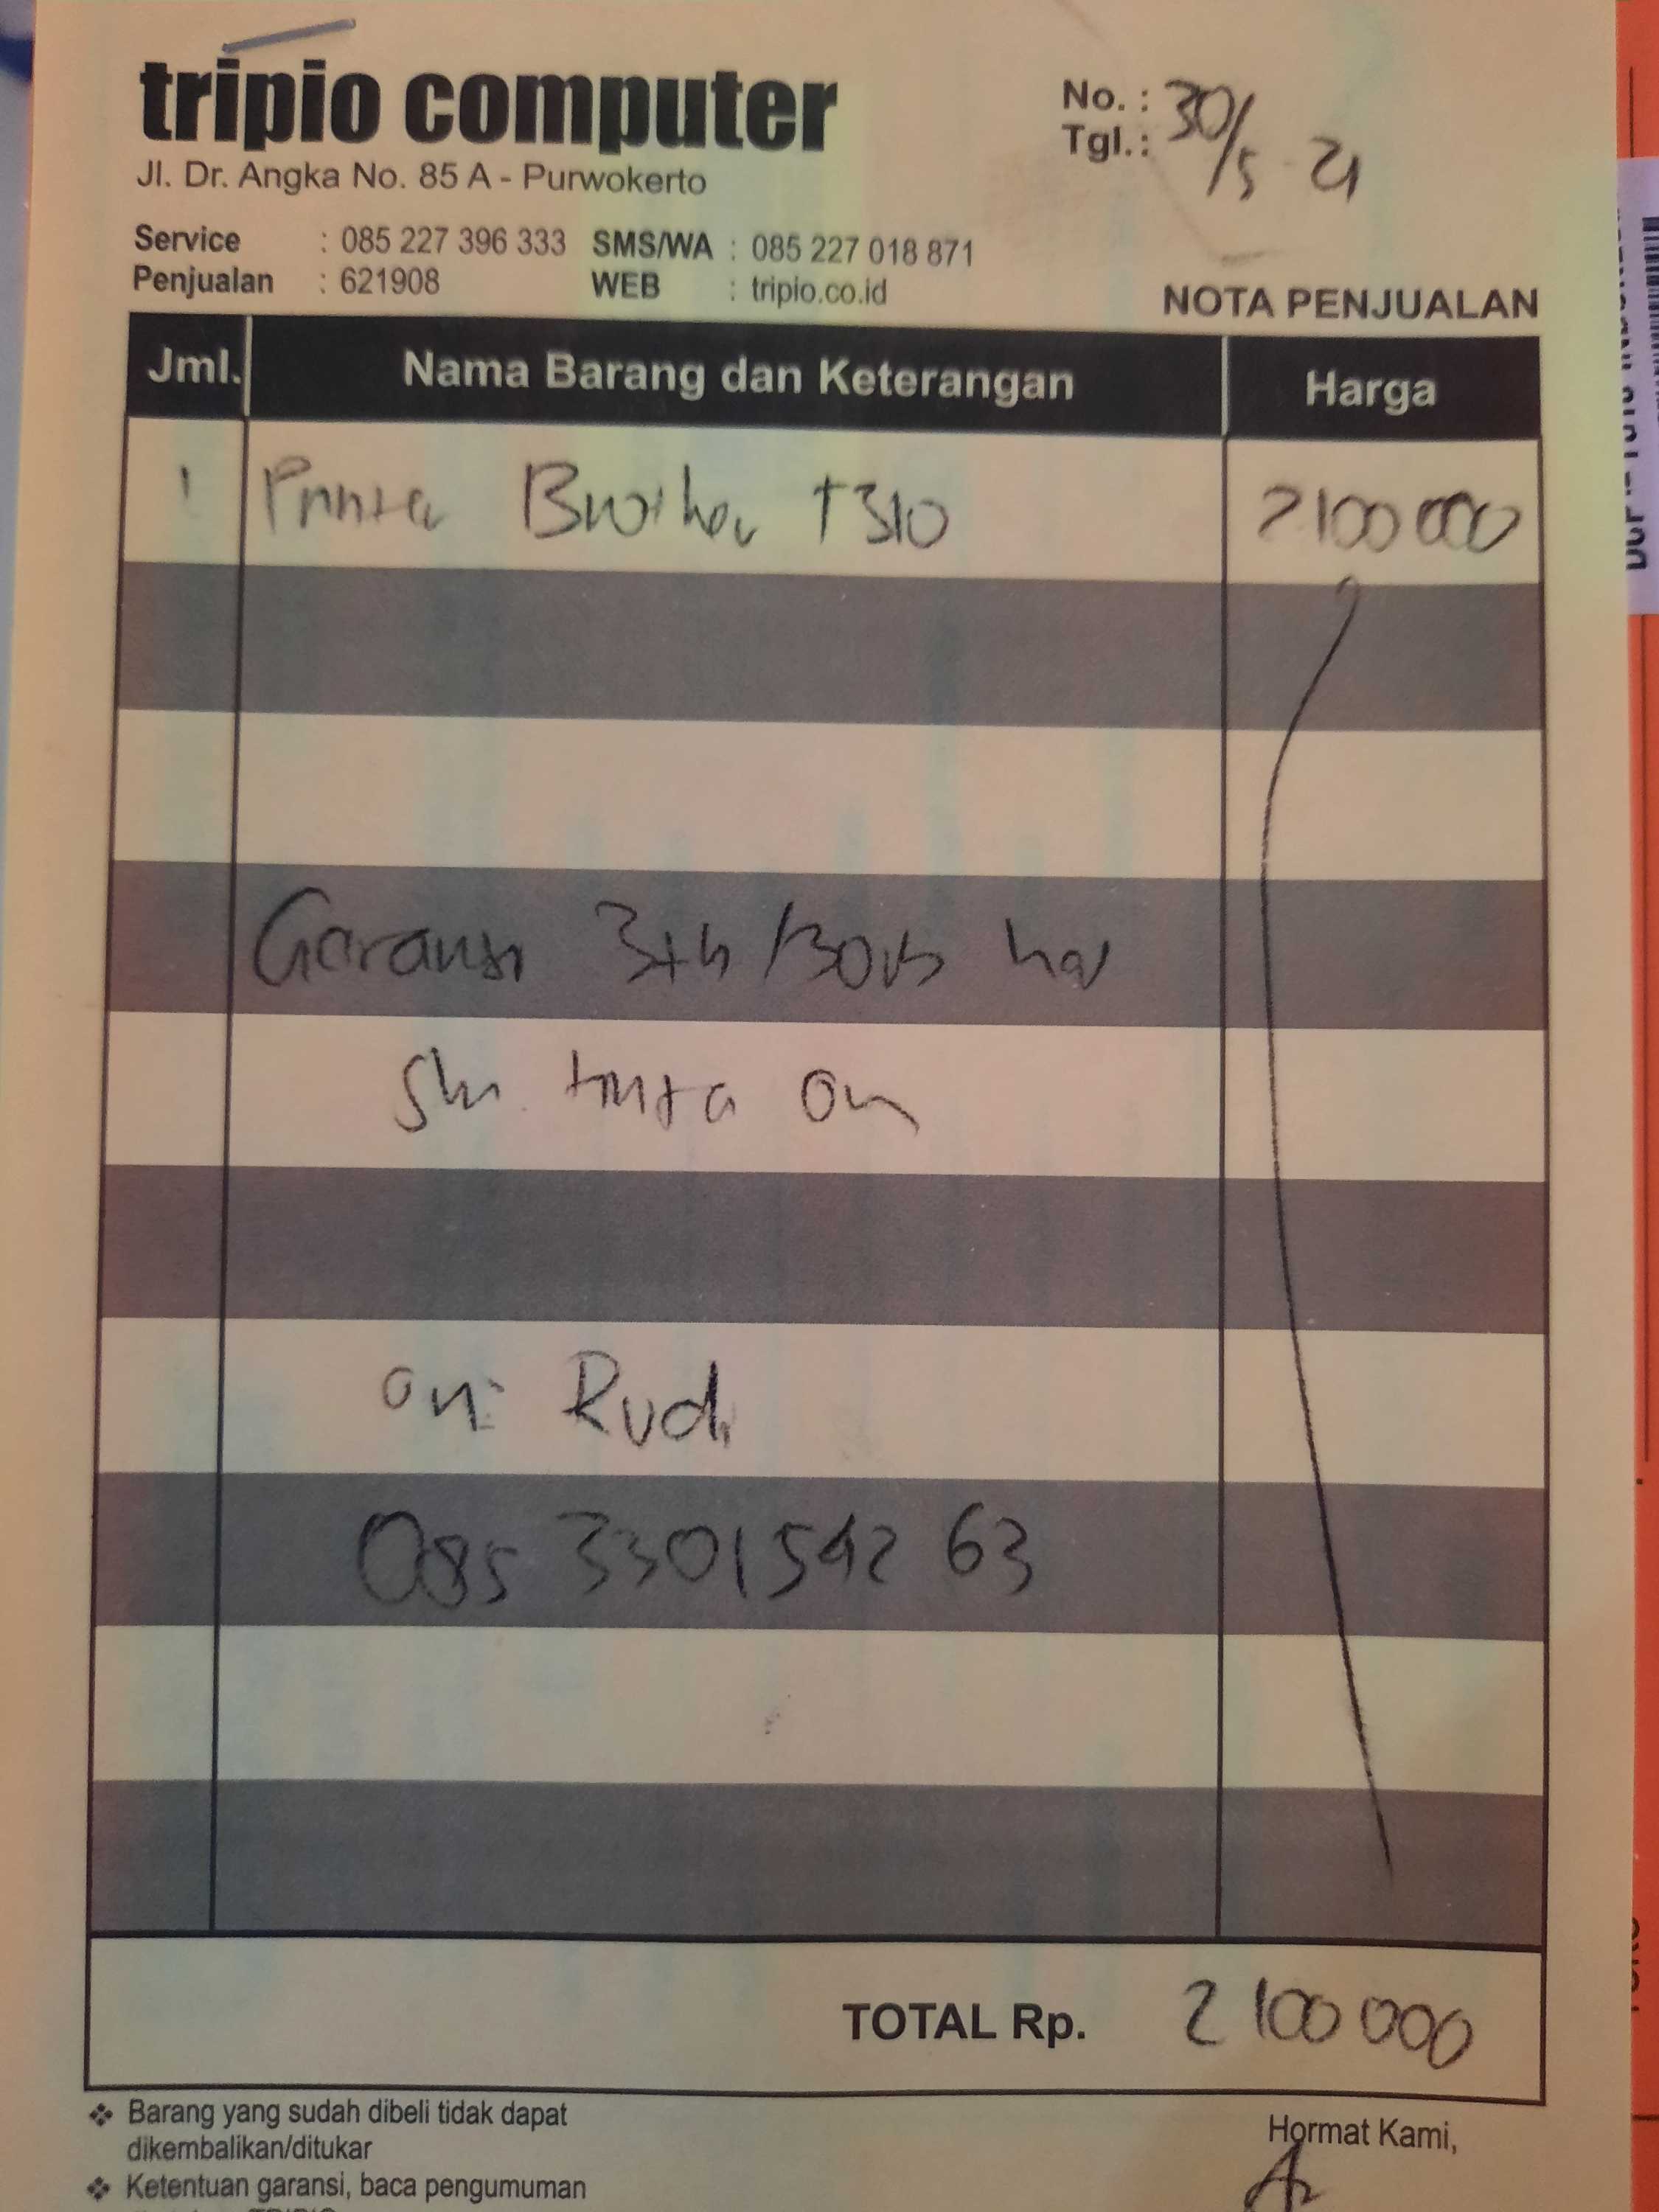 tripio computer
Jl. Dr. Angka No. 85 A - Purwokerto
Service : 085 227 396 333 SMS/WA : 085 227 018 871
Penjualan : 621908 WEB : tripio.co.id
No. :
Tgl. : 30/5 21
NOTA PENJUALAN
Jml. Nama Barang dan Keterangan Harga
1 Printer Brother T310 2100 000
Garansi 3th / 30rb hal
tinta ori
Rudi
085 3301542 63
TOTAL Rp. 2 100 000
❖ Barang yang sudah dibeli tidak dapat
dikembalikan/ditukar
❖ Ketentuan garansi, baca pengumuman
Hormat Kami,